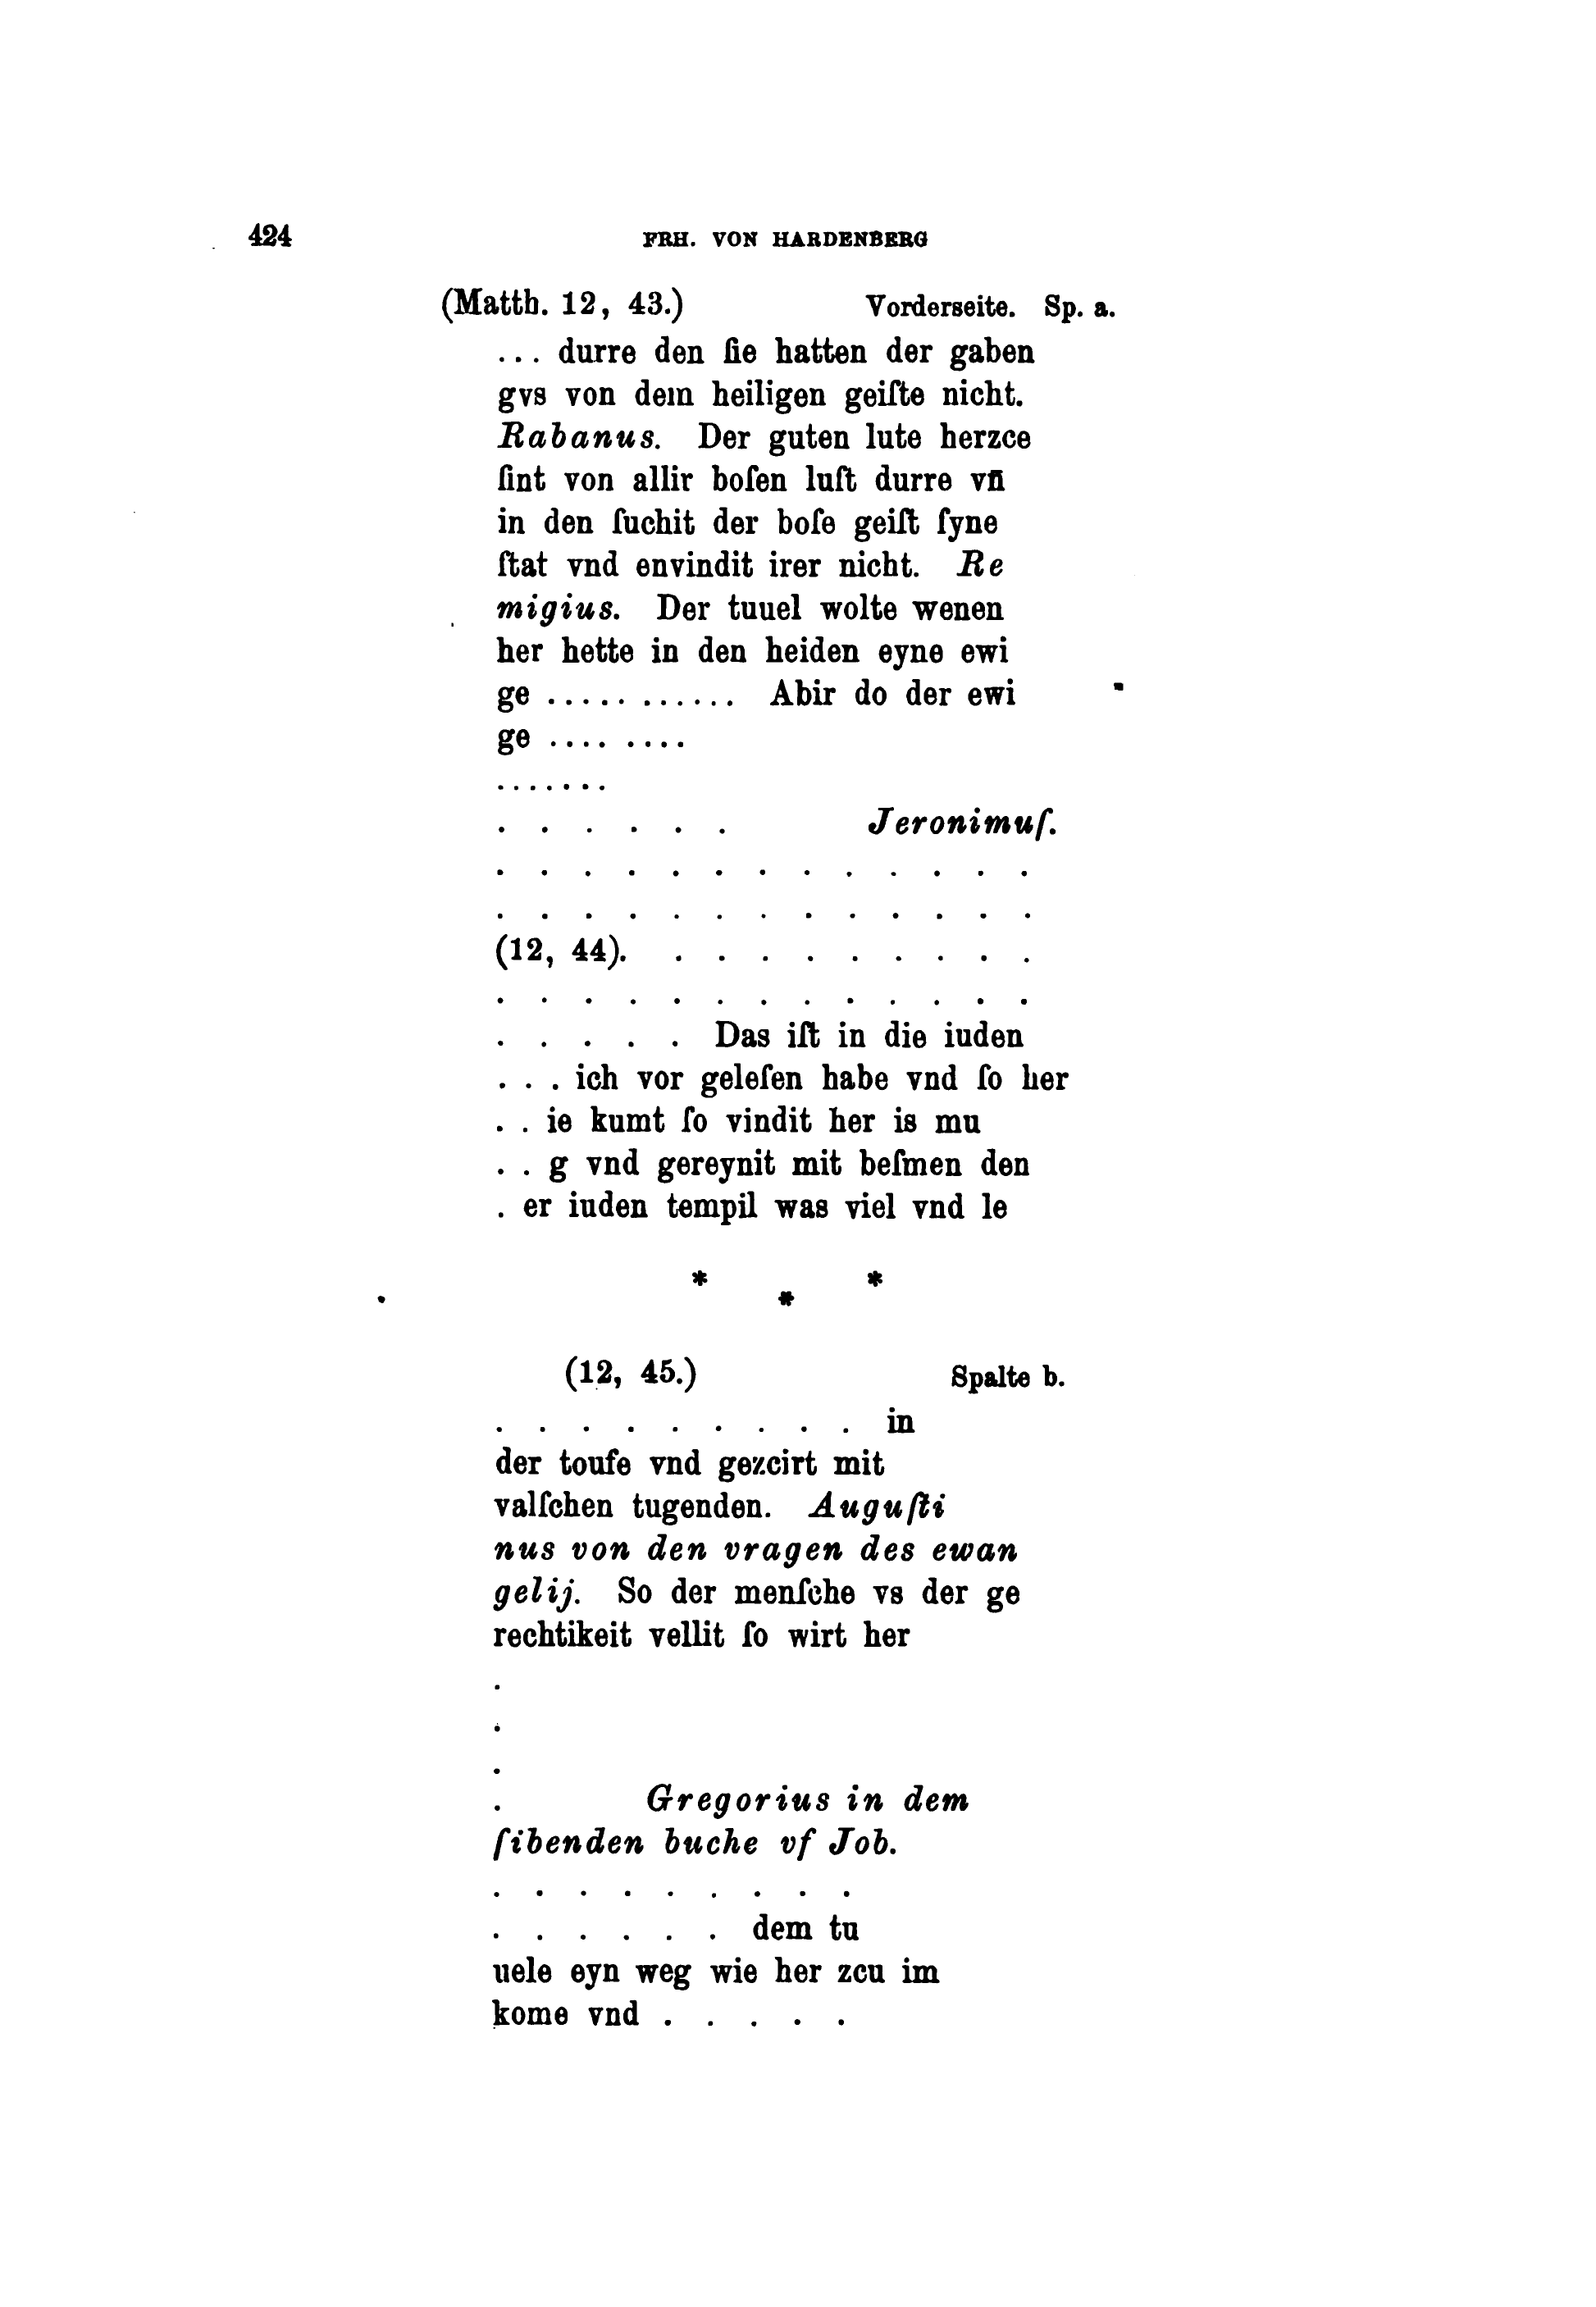 424 FRH. VON HARDENBERG
(Matth. 12, 43.) Vorderseite. Sp. a.
... durre den ſie hatten der gaben
gvs von dem heiligen geiſte nicht.
Rabanus. Der guten lute herzce
ſint von allir boſen luſt durre vn̄
in den ſuchit der boſe geiſt ſyne
ſtat vnd envindit irer nicht. Re
migius. Der tuuel wolte wenen
her hette in den heiden eyne ewi
ge ............ Abir do der ewi
ge ........
.......
. . . . . . Jeronimuſ.
. . . . . . . . . . . . .
. . . . . . . . . . . . .
(12, 44). . . . . . . . . .
. . . . . . . . . . . . .
. . . . . Das iſt in die iuden
. . . ich vor geleſen habe vnd ſo her
. . ie kumt ſo vindit her is mu
. . g vnd gereynit mit beſmen den
. er iuden tempil was viel vnd le
* * *
(12, 45.) Spalte b.
. . . . . . . . . in
der toufe vnd gezcirt mit
valſchen tugenden. Auguſti
nus von den vragen des ewan
gelij. So der menſche vs der ge
rechtikeit vellit ſo wirt her
.
.
.
. Gregorius in dem
ſibenden buche vf Job.
. . . . . . . . .
. . . . . . dem tu
uele eyn weg wie her zcu im
kome vnd . . . . .